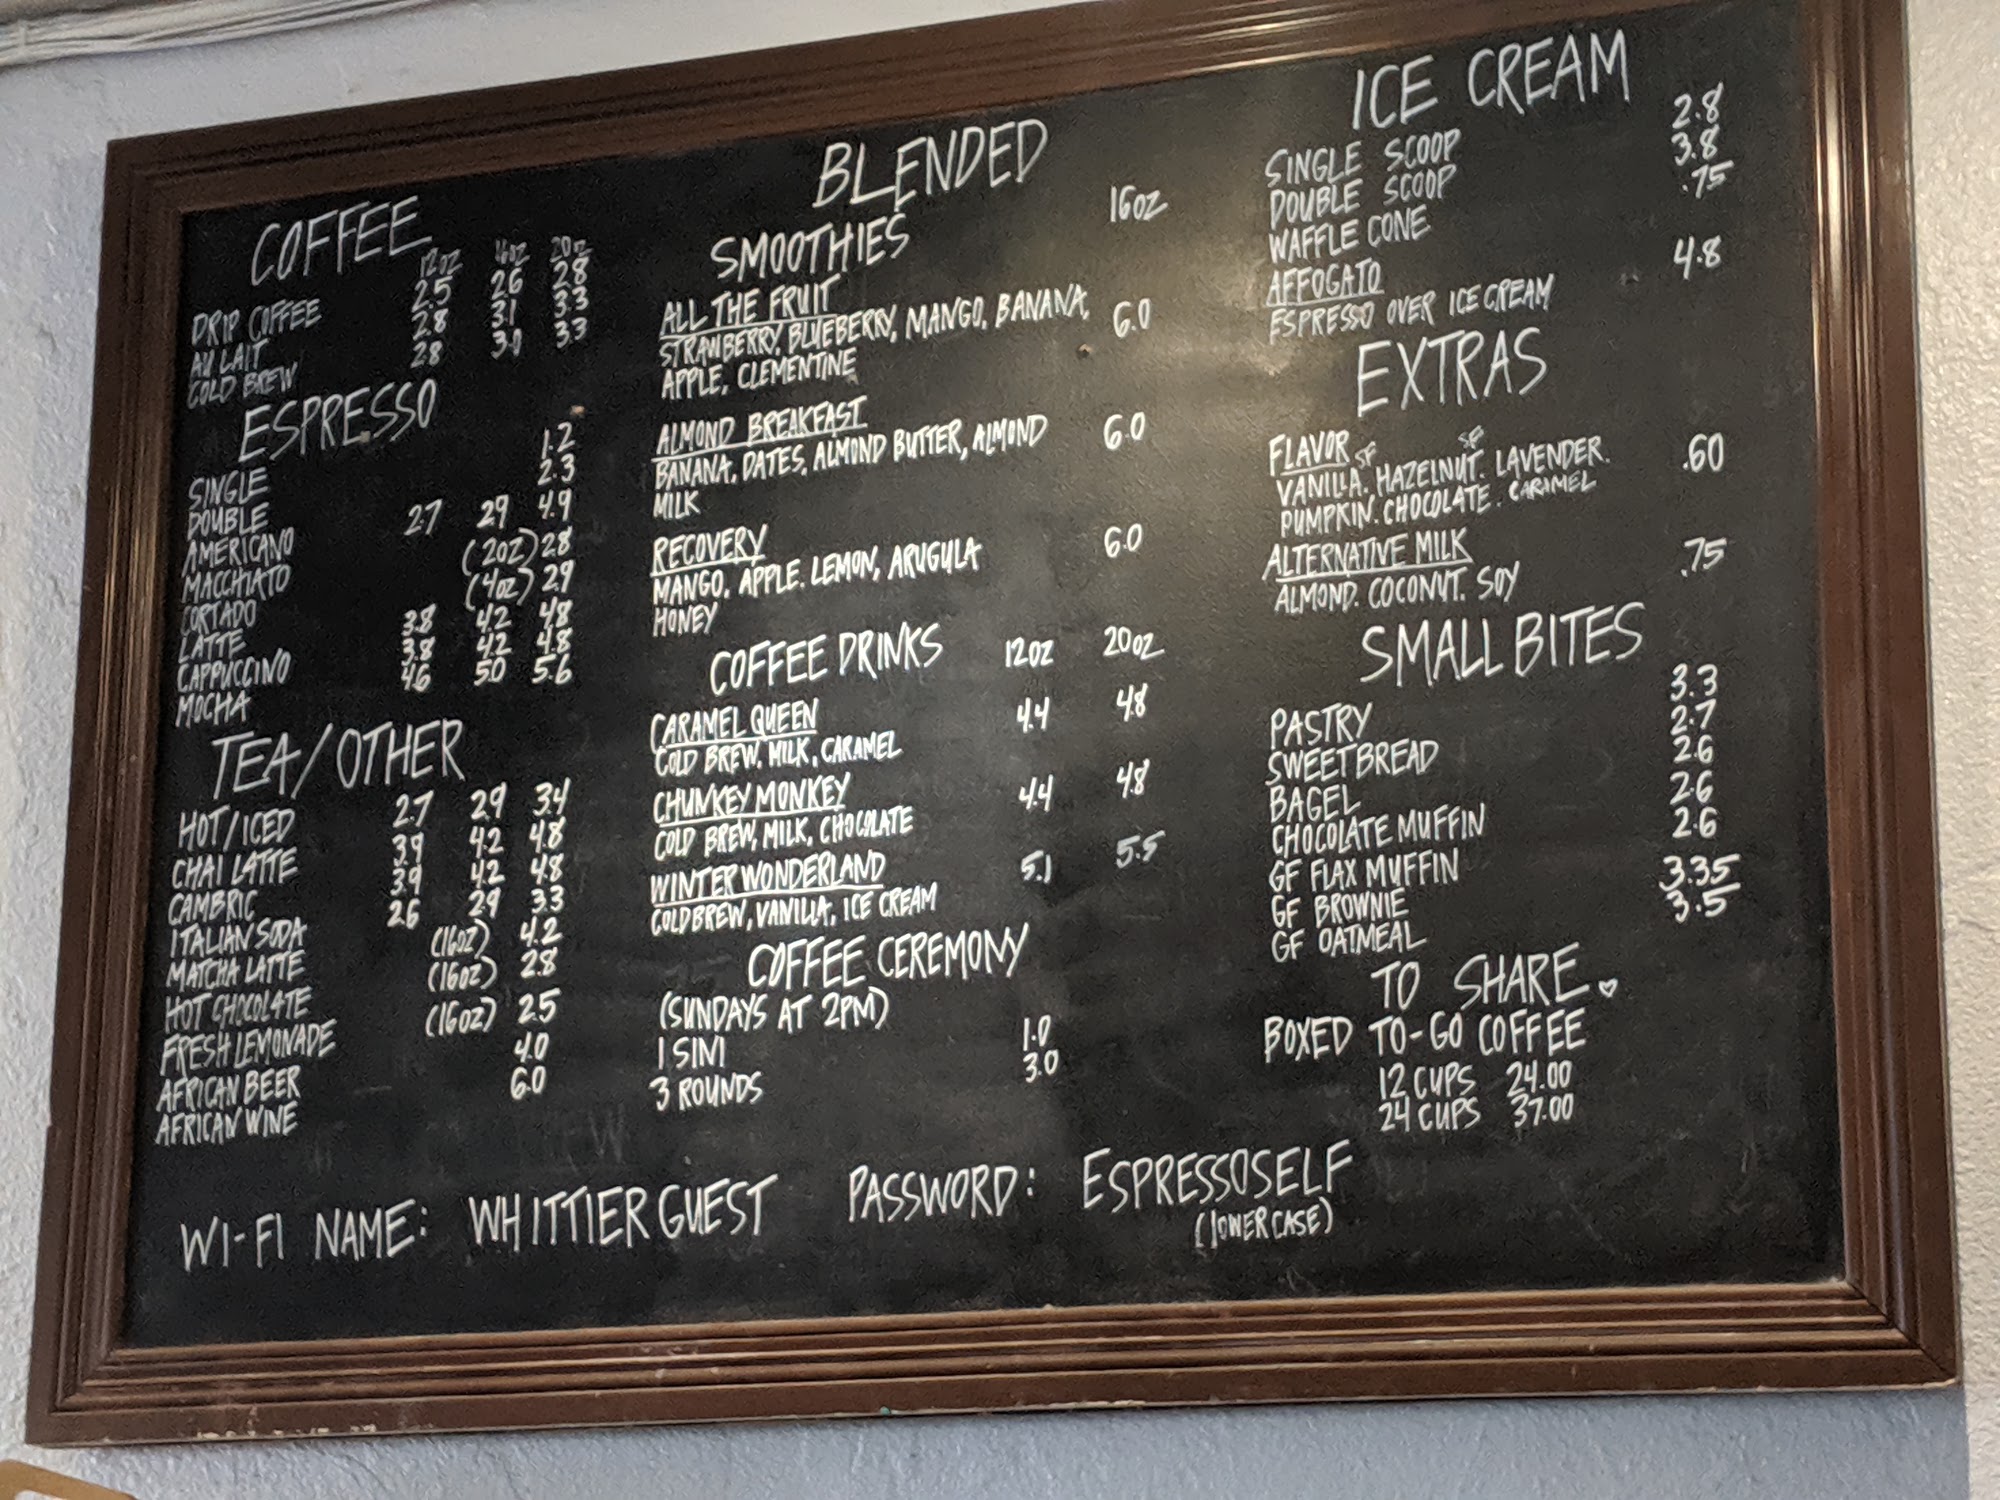 COFFEE
12oz 16oz 20oz
DRIP COFFEE 2.5 2.6 2.8
AU LAIT 2.8 3.1 3.3
COLD BREW 2.8 3.0 3.3
ESPRESSO
SINGLE 1.2
DOUBLE 2.3
AMERICANO 2.7 2.9 4.9
MACCHIATO (2oz) 2.8
CORTADO (4oz) 2.9
LATTE 3.8 4.2 4.8
CAPPUCCINO 3.8 4.2 4.8
MOCHA 4.6 5.0 5.6
TEA/OTHER
HOT/ICED 2.7 2.9 3.4
CHAI LATTE 3.9 4.2 4.8
CAMBRIC 3.9 4.2 4.8
ITALIAN SODA 2.6 2.9 3.3
MATCHA LATTE (16oz) 4.2
HOT CHOCOLATE (16oz) 2.8
FRESH LEMONADE (16oz) 2.5
AFRICAN BEER 4.0
AFRICAN WINE 6.0
BLENDED
SMOOTHIES 16oz
ALL THE FRUIT
STRAWBERRY, BLUEBERRY, MANGO, BANANA, 6.0
APPLE, CLEMENTINE
ALMOND BREAKFAST
BANANA, DATES, ALMOND BUTTER, ALMOND 6.0
MILK
RECOVERY
MANGO, APPLE. LEMON, ARUGULA 6.0
HONEY
COFFEE DRINKS 12oz 20oz
CARAMEL QUEEN 4.4 4.8
COLD BREW, MILK, CARAMEL
CHUNKEY MONKEY 4.4 4.8
COLD BREW, MILK, CHOCOLATE
WINTER WONDERLAND 5.1 5.5
COLD BREW, VANILLA, ICE CREAM
COFFEE CEREMONY
(SUNDAYS AT 2PM)
1 SINI 1.0
3 ROUNDS 3.0
ICE CREAM
SINGLE SCOOP 2.8
DOUBLE SCOOP 3.8
WAFFLE CONE .75
AFFOGATO 4.8
ESPRESSO OVER ICE CREAM
EXTRAS
FLAVOR SF SF .60
VANILLA. HAZELNUT. LAVENDER.
PUMPKIN. CHOCOLATE. CARAMEL
ALTERNATIVE MILK .75
ALMOND. COCONUT. SOY
SMALL BITES
PASTRY 3.3
SWEETBREAD 2.7
BAGEL 2.6
CHOCOLATE MUFFIN 2.6
GF FLAX MUFFIN 2.6
GF BROWNIE 3.35
GF OATMEAL 3.5
TO SHARE
BOXED TO-GO COFFEE
12 CUPS 24.00
24 CUPS 37.00
WI-FI NAME: WHITTIER GUEST PASSWORD: ESPRESSOSELF
(LOWER CASE)